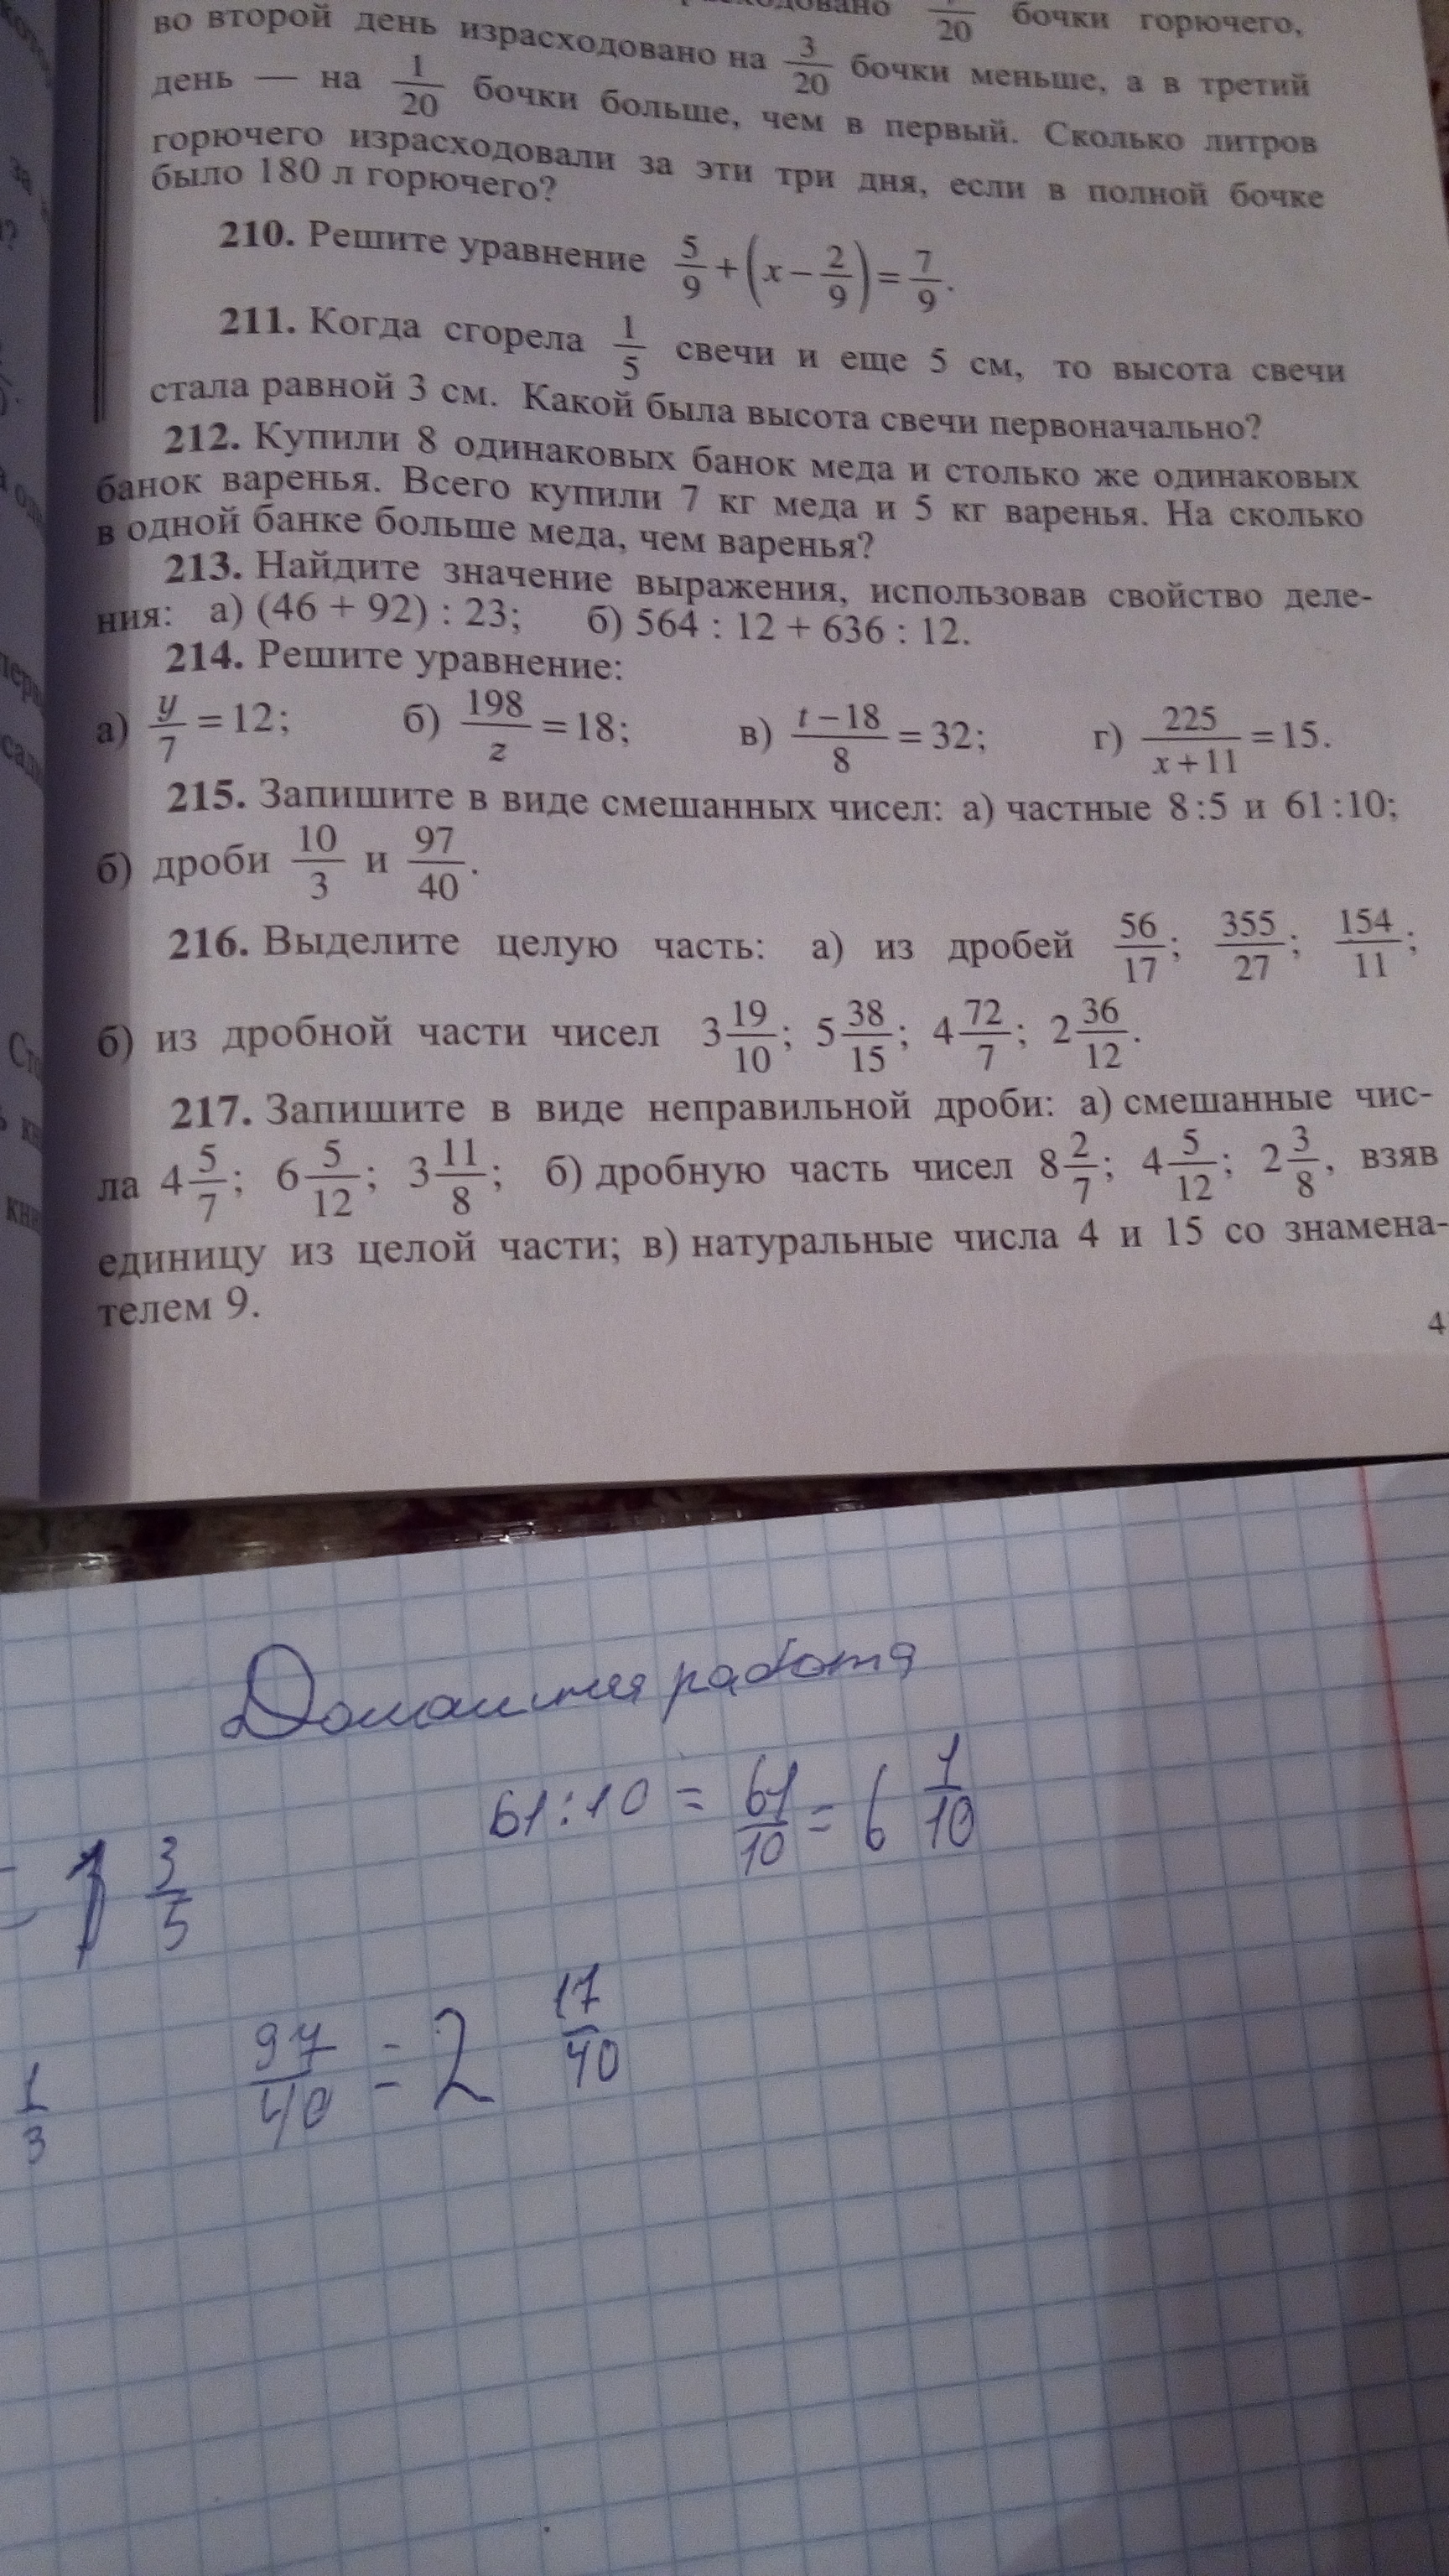 бочки горючего,
во второй день израсходовано на 3/20 бочки меньше, а в третий
день — на 1/20 бочки больше, чем в первый. Сколько литров
горючего израсходовали за эти три дня, если в полной бочке
было 180 л горючего?
210. Решите уравнение 5/9 + (x − 2/9) = 7/9.
211. Когда сгорела 1/5 свечи и еще 5 см, то высота свечи
стала равной 3 см. Какой была высота свечи первоначально?
212. Купили 8 одинаковых банок меда и столько же одинаковых
банок варенья. Всего купили 7 кг меда и 5 кг варенья. На сколько
в одной банке больше меда, чем варенья?
213. Найдите значение выражения, использовав свойство деле-
ния: а) (46 + 92) : 23; б) 564 : 12 + 636 : 12.
214. Решите уравнение:
а) y/7 = 12; б) 198/z = 18; в) t − 18/8 = 32; г) 225/x + 11 = 15.
215. Запишите в виде смешанных чисел: а) частные 8 : 5 и 61 : 10;
б) дроби 10/3 и 97/40.
216. Выделите целую часть: а) из дробей 56/17; 355/27; 154/11;
б) из дробной части чисел 3 19/10; 5 38/15; 4 72/7; 2 36/12.
217. Запишите в виде неправильной дроби: а) смешанные чис-
ла 4 5/7; 6 5/12; 3 11/8; б) дробную часть чисел 8 2/7; 4 5/12; 2 3/8, взяв
единицу из целой части; в) натуральные числа 4 и 15 со знамена-
телем 9.
4
Домашняя работа
61:10 = 61/10 = 6 1/10
= 1 3/5
1/3
97/40 = 2 17/40